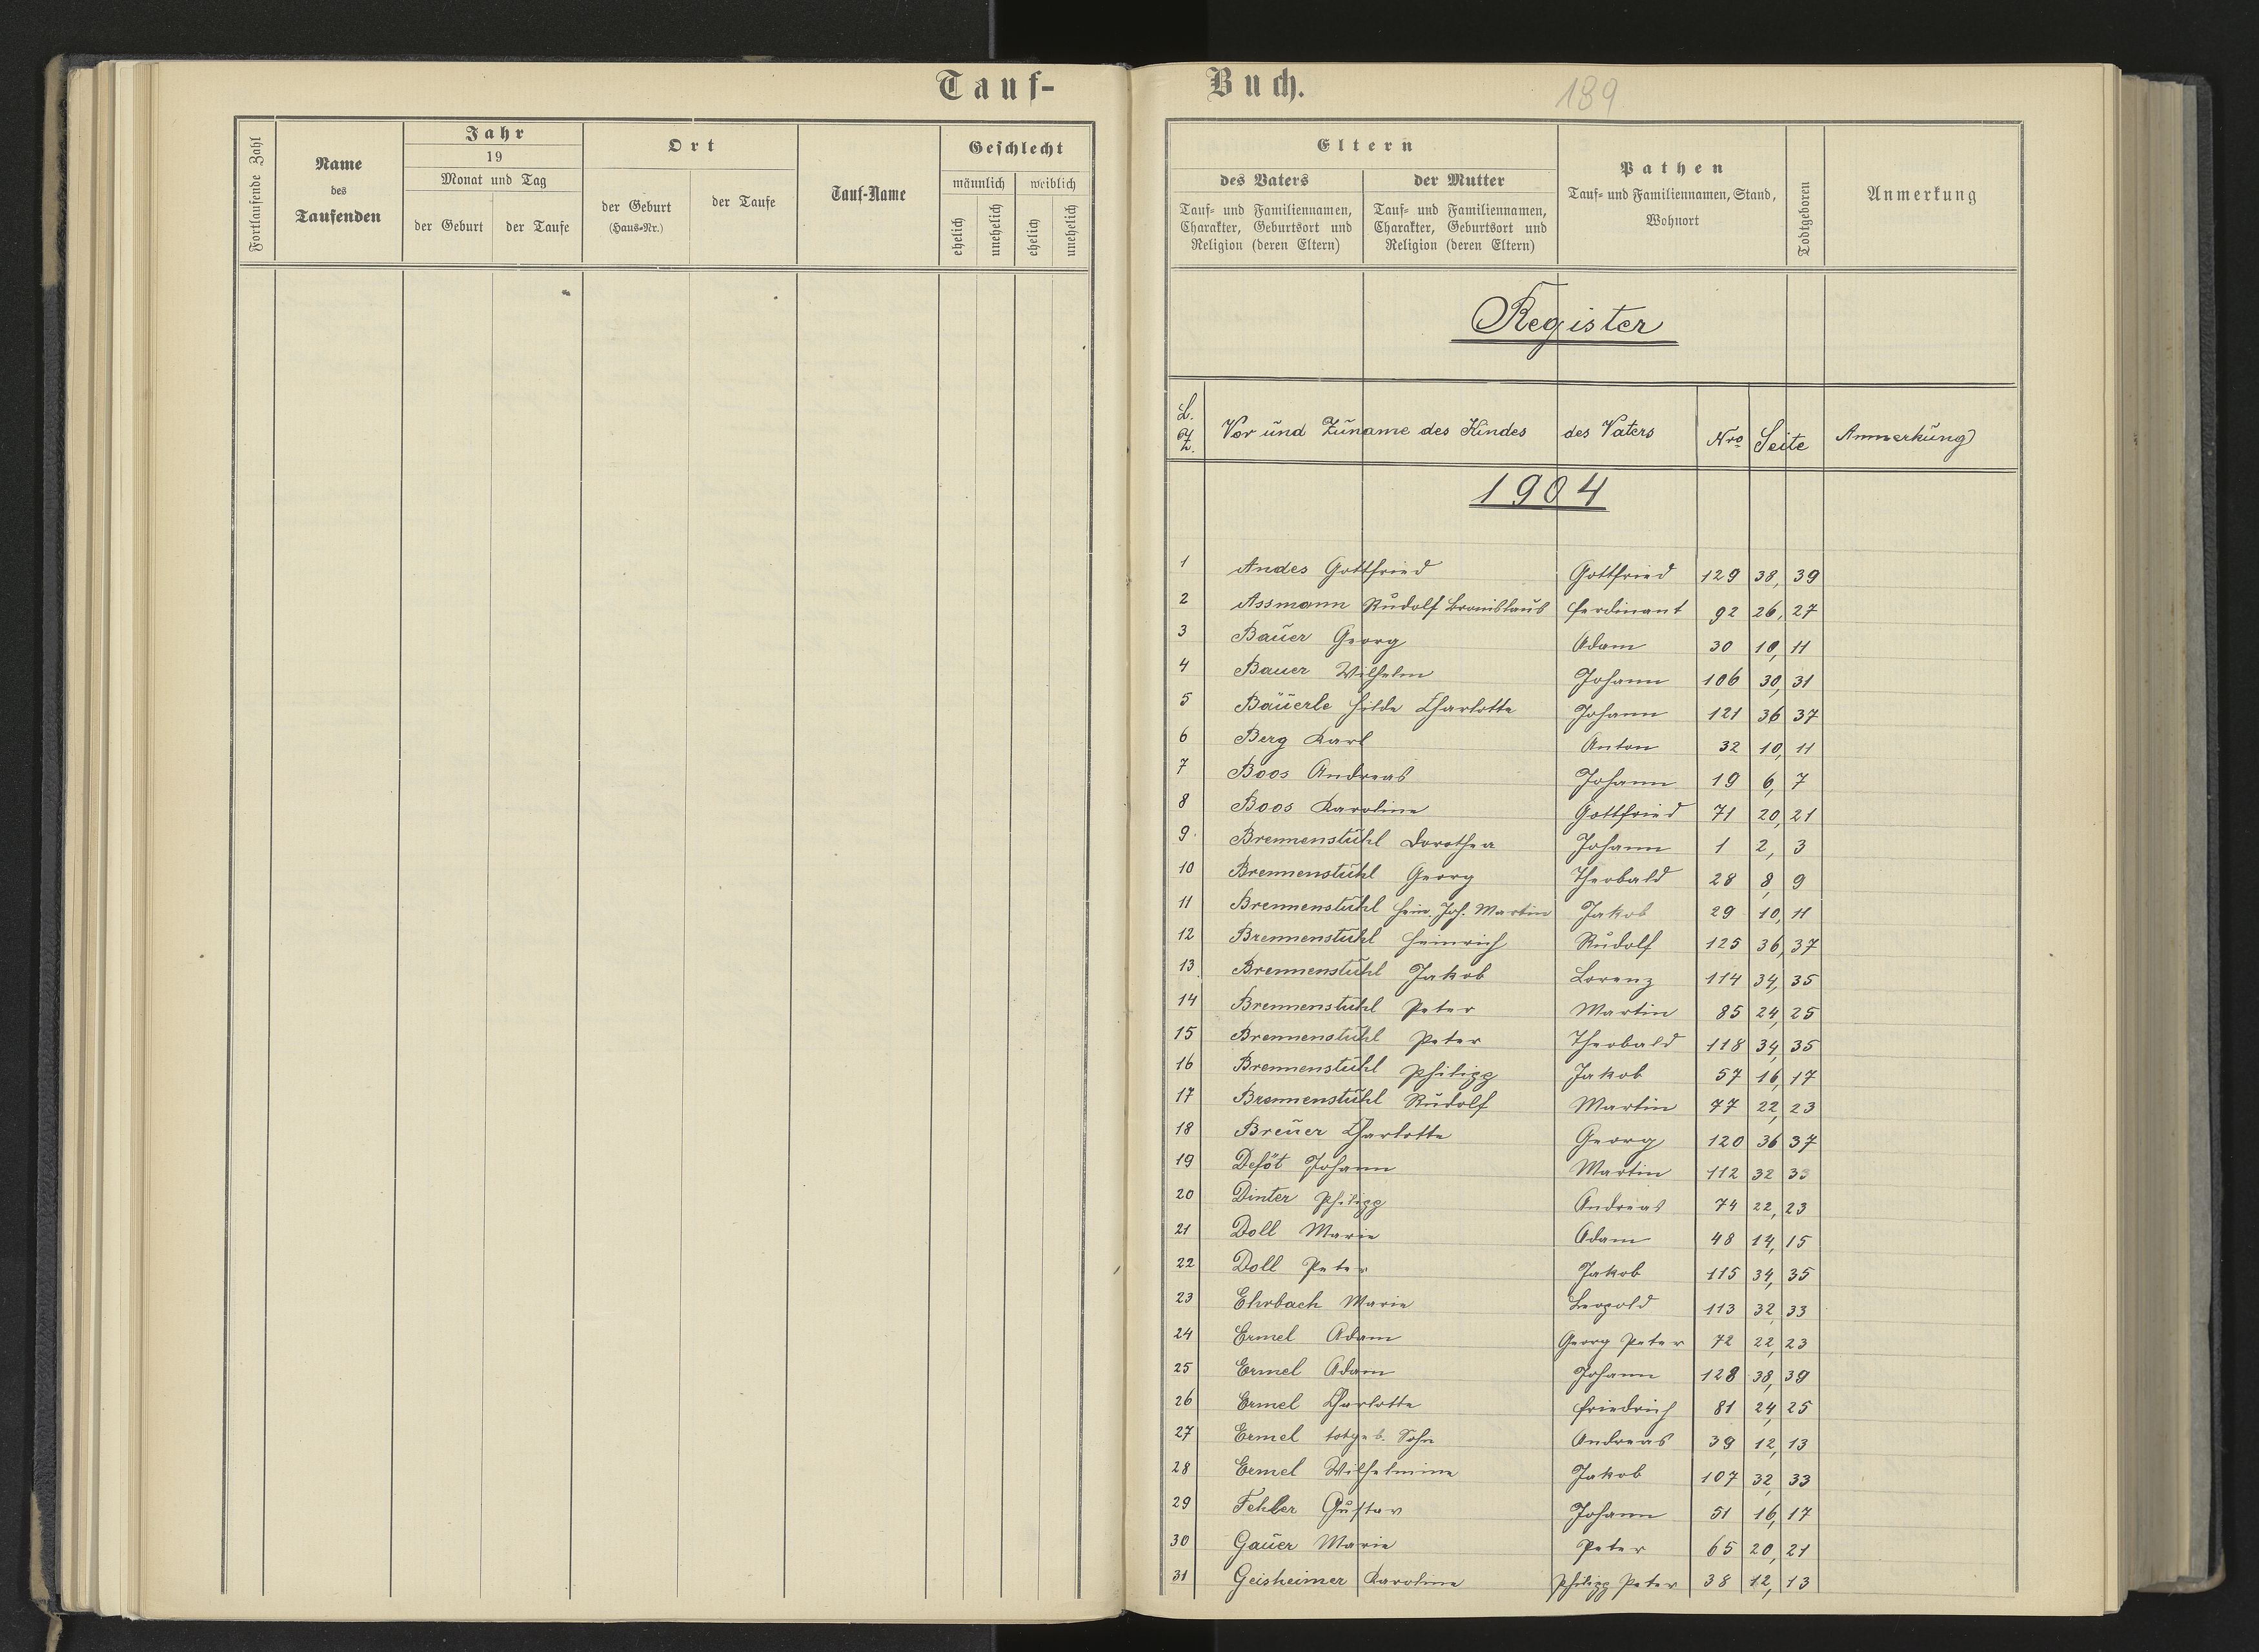 Tauf-
Fortlaufende Zahl
Name
des
Taufenden
Jahr
19
Monat und Tag
der Geburt
der Taufe
Ort
der Geburt
(Haus-Nr.)
der Taufe
Tauf-Name
Geschlecht
männlich
weiblich
ehelich
unehelich
ehelich
unehelich
Buch.
189
Eltern
des Vaters
Tauf- und Familiennamen,
Charakter, Geburtsort und
Religion (deren Eltern)
der Mutter
Tauf- und Familiennamen,
Charakter, Geburtsort und
Religion (deren Eltern)
Pathen
Tauf- und Familiennamen, Stand,
Wohnort
Todtgeboren
Anmerkung
Register
L. Z. Vor und Zuname des Kindes des Vaters Nro Seite Anmerkung
1904
1 Andes Gottfried Gottfried 129 38, 39
2 Assmann Rudolf Bronislaus Ferdinant 92 26, 27
3 Bauer Georg Adam 30 10, 11
4 Bauer Wilhelm Johann 106 30, 31
5 Bäuerle Hilde Charlotte Johann 121 36 37
6 Berg Karl Anton 32 10, 11
7 Boos Andreas Johann 19 6, 7
8 Boos Karoline Gottfried 71 20, 21
9 Brennenstuhl Dorothea Johann 1 2, 3
10 Brennenstuhl Georg Theobald 28 8, 9
11 Brennenstuhl Hein. Joh. Martin Jakob 29 10, 11
12 Brennenstuhl Heinrich Rudolf 125 36, 37
13 Brennenstuhl Jakob Lorenz 114 34, 35
14 Brennenstuhl Peter Martin 85 24, 25
15 Brennenstuhl Peter Theobald 118 34, 35
16 Brennenstuhl Philipp Jakob 57 16, 17
17 Brennenstuhl Rudolf Martin 77 22, 23
18 Breuer Charlotte Georg 120 36 37
19 Deföt Johann Martin 112 32 33
20 Dinter Philipp Andreas 74 22, 23
21 Doll Marie Adam 48 14, 15
22 Doll Peter Jakob 115 34, 35
23 Ehrbach Marie Leopold 113 32, 33
24 Ermel Adam Georg Peter 72 22, 23
25 Ermel Adam Johann 128 38, 39
26 Ermel Charlotte Friedrich 81 24, 25
27 Ermel totgeb. Sohn Andreas 39 12, 13
28 Ermel Wilhelmine Jakob 107 32, 33
29 Fehler Gustav Johann 51 16, 17
30 Gauer Marie Peter 65 20, 21
31 Geisheimer Karoline Philipp Peter 38 12, 13